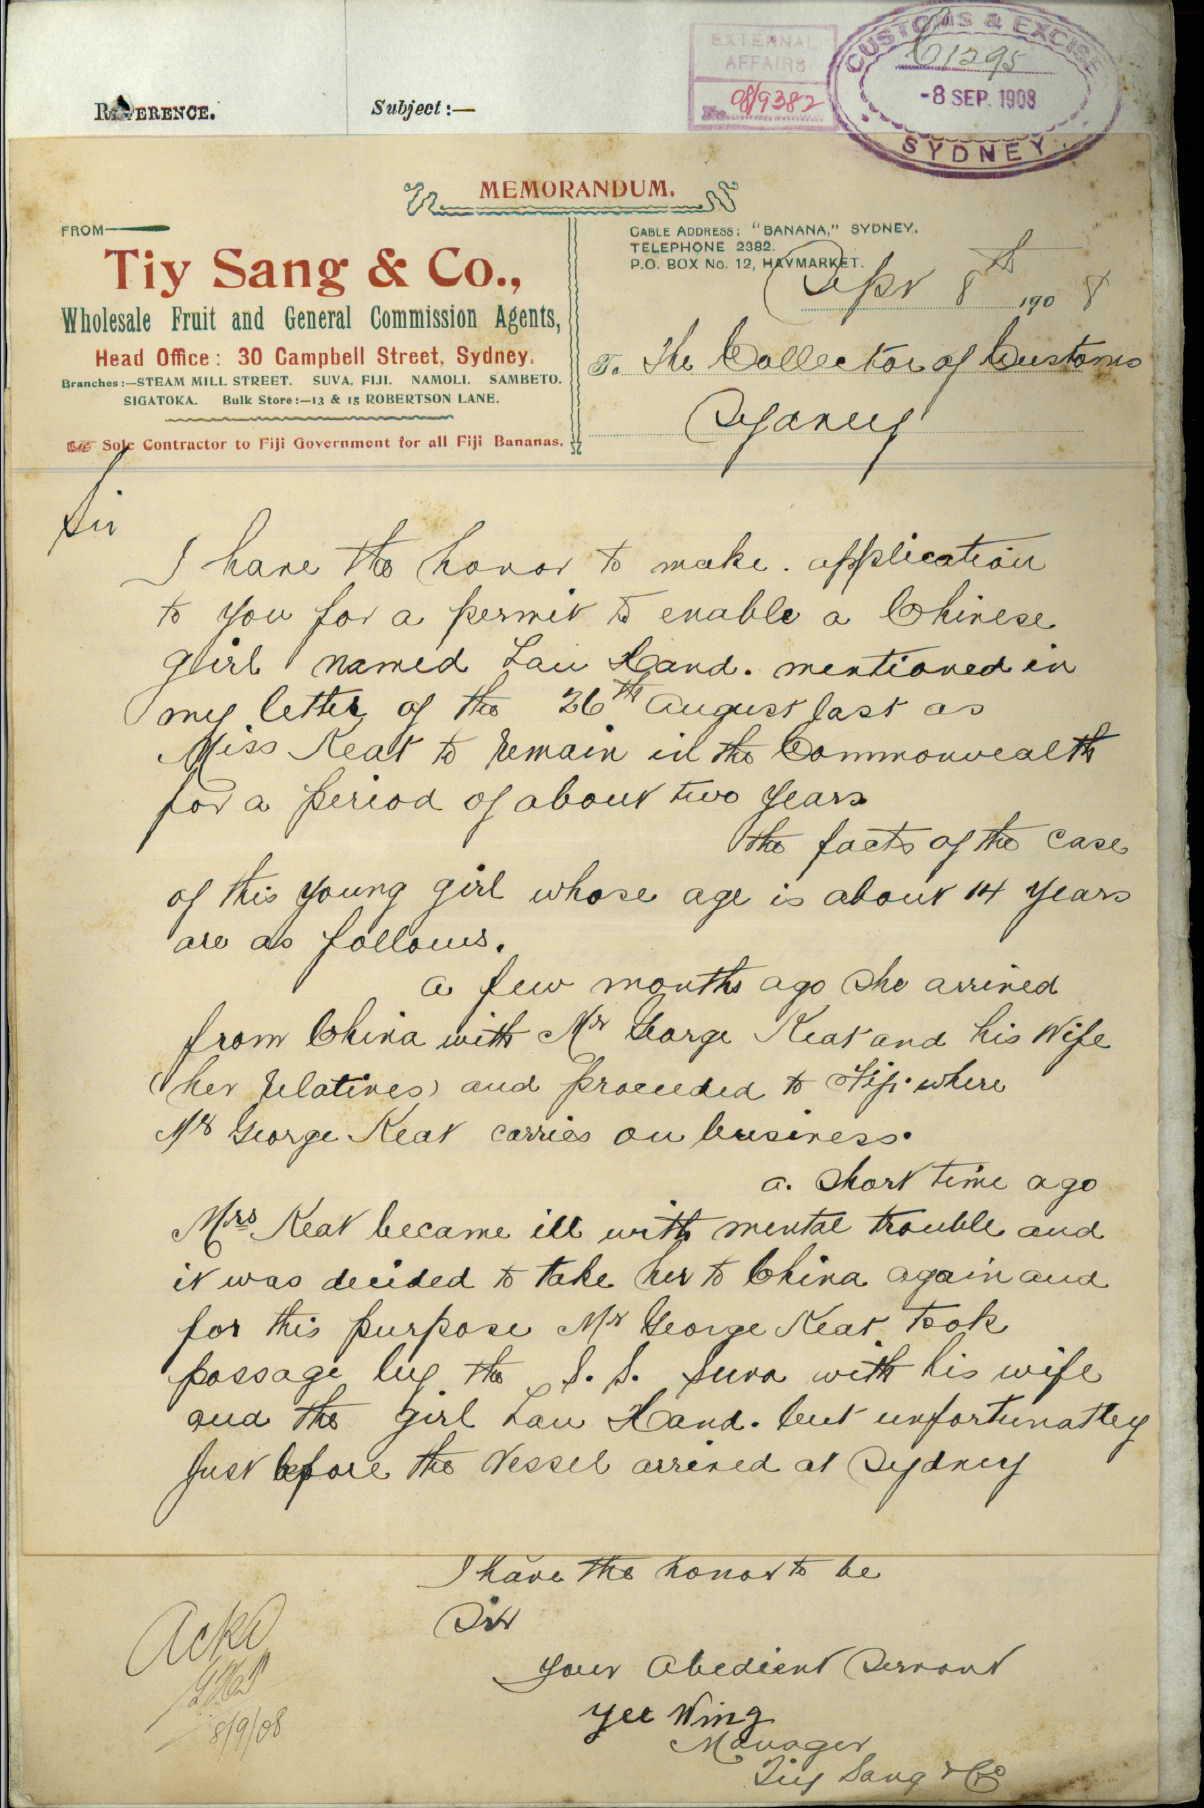 REFERENCE.
Subject:—
EXTERNAL
AFFAIRS
No. 08/9382
CUSTOMS & EXCISE
61295
-8 SEP. 1908
SYDNEY
MEMORANDUM.
FROM
Tiy Sang & Co.,
Wholesale Fruit and General Commission Agents,
Head Office: 30 Campbell Street, Sydney.
Branches:—STEAM MILL STREET. SUVA, FIJI. NAMOLI. SAMBETO.
SIGATOKA. Bulk Store:—13 & 15 ROBERTSON LANE.
Sole Contractor to Fiji Government for all Fiji Bananas.
CABLE ADDRESS: "BANANA," SYDNEY.
TELEPHONE 2382.
P.O. BOX No. 12, HAYMARKET.
Sept 8th 1908
To The Collector of Customs
Sydney
Sir
I have the honor to make. application
to you for a permit to enable a Chinese
girl named Lau Hand. mentioned in
my letter of the 26th August last as
Miss Keat to remain in the Commonwealth
for a period of about two years
the facts of the case
of this young girl whose age is about 14 years
are as follows.
a few months ago she arrived
from China with Mr George Keat and his Wife
(her relatives) and proceeded to Fiji where
Mr George Keat carries on business.
a. short time ago
Mrs Keat became ill with mental trouble and
it was decided to take her to China again and
for this purpose Mr George Keat took
passage by the S. S. Suva with his wife
and the girl Lau Hand. but unfortunatley
Just before the Vessel arrived at Sydney
I have the honor to be
Sir
your Obedient Servant
Yee Wing
Manager
Tiy Sang & Co
Ackd
8/9/08